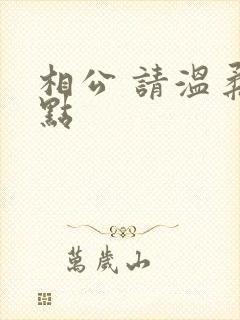 相公 請溫柔
點
萬歲山